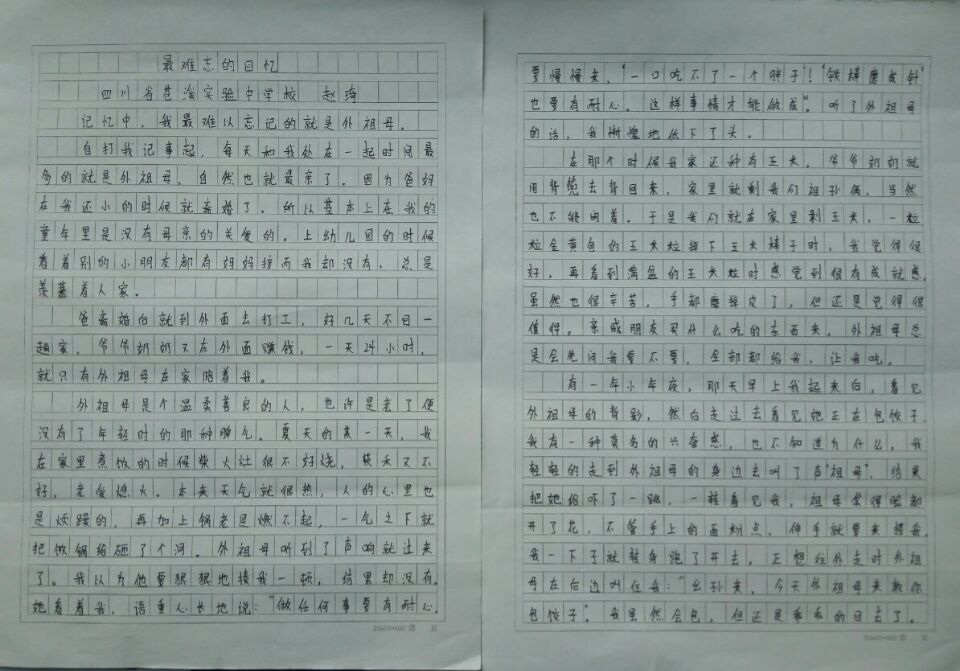 最难忘的回忆
四川省苍溪实验中学校 赵琦
记忆中，我最难以忘记的就是外祖母。
自打我记事起，每天和我处在一起时间最
多的就是外祖母，自然也就最亲了。因为爸妈
在我还小的时候就离婚了。所以基本上在我的
童年里是没有母亲的关爱的。上幼儿园的时候
看着别的小朋友都有妈妈接而我却没有，总是
羡慕着人家。
爸离婚后就到外面去打工，好几天不回一
趟家，爷爷奶奶又在外面赚钱，一天24小时，
就只有外祖母在家陪着我。
外祖母是个温柔善良的人，也许是老了便
没有了年轻时的那种脾气。夏天的某一天，我
在家里煮饭的时候柴火灶很不好烧，柴禾又不
好，老爱熄火。本来天气就很热，人的心里也
是烦躁的，再加上锅老是燃不起，一气之下就
把饭锅给砸了个洞。外祖母听到了声响就过来
了。我以为他要狠狠地揍我一顿，结果却没有。
她看着我，语重心长地说：“做任何事要有耐心。
要慢慢来，‘一口吃不了一个胖子’！‘铁棒磨成针’
也要有耐心。这样事情才能做成”。听了外祖母
的话，我惭愧地低下了头。
在那个时候我家还种有玉米。爷爷奶奶就
用背篼去背回来，家里就剩我们祖孙俩，当然
也不能闲着。于是我们就在家里剥玉米，一粒
粒金黄色的玉米粒掉下玉米棒子时，我觉得很
好，再看到满盆的玉米粒时感觉到很有成就感。
虽然也很辛苦，手都磨掉皮了，但还是觉得很
值得。亲戚朋友买什么吃的东西来，外祖母总
是会先问我要不要，全部都给我，让我吃。
有一年小年夜，那天早上我起来后，看见
外祖母的背影，然后走过去看见她正在包饺子
我有一种莫名的兴奋感，也不知道为什么，我
轻轻的走到外祖母的身边去叫了声“祖母”，结果
把她给吓了一跳，一转看见我，祖母笑得脸都
开了花，不管手上的面粉点，伸手就要来搂我。
我一下子就转身跑了开去，正想往外走时外祖
母在后边叫住我：“幺孙来，今天外祖母来教你
包饺子”。我虽然会包，但还是乖乖的回去了。
20x20=400
20x20=400